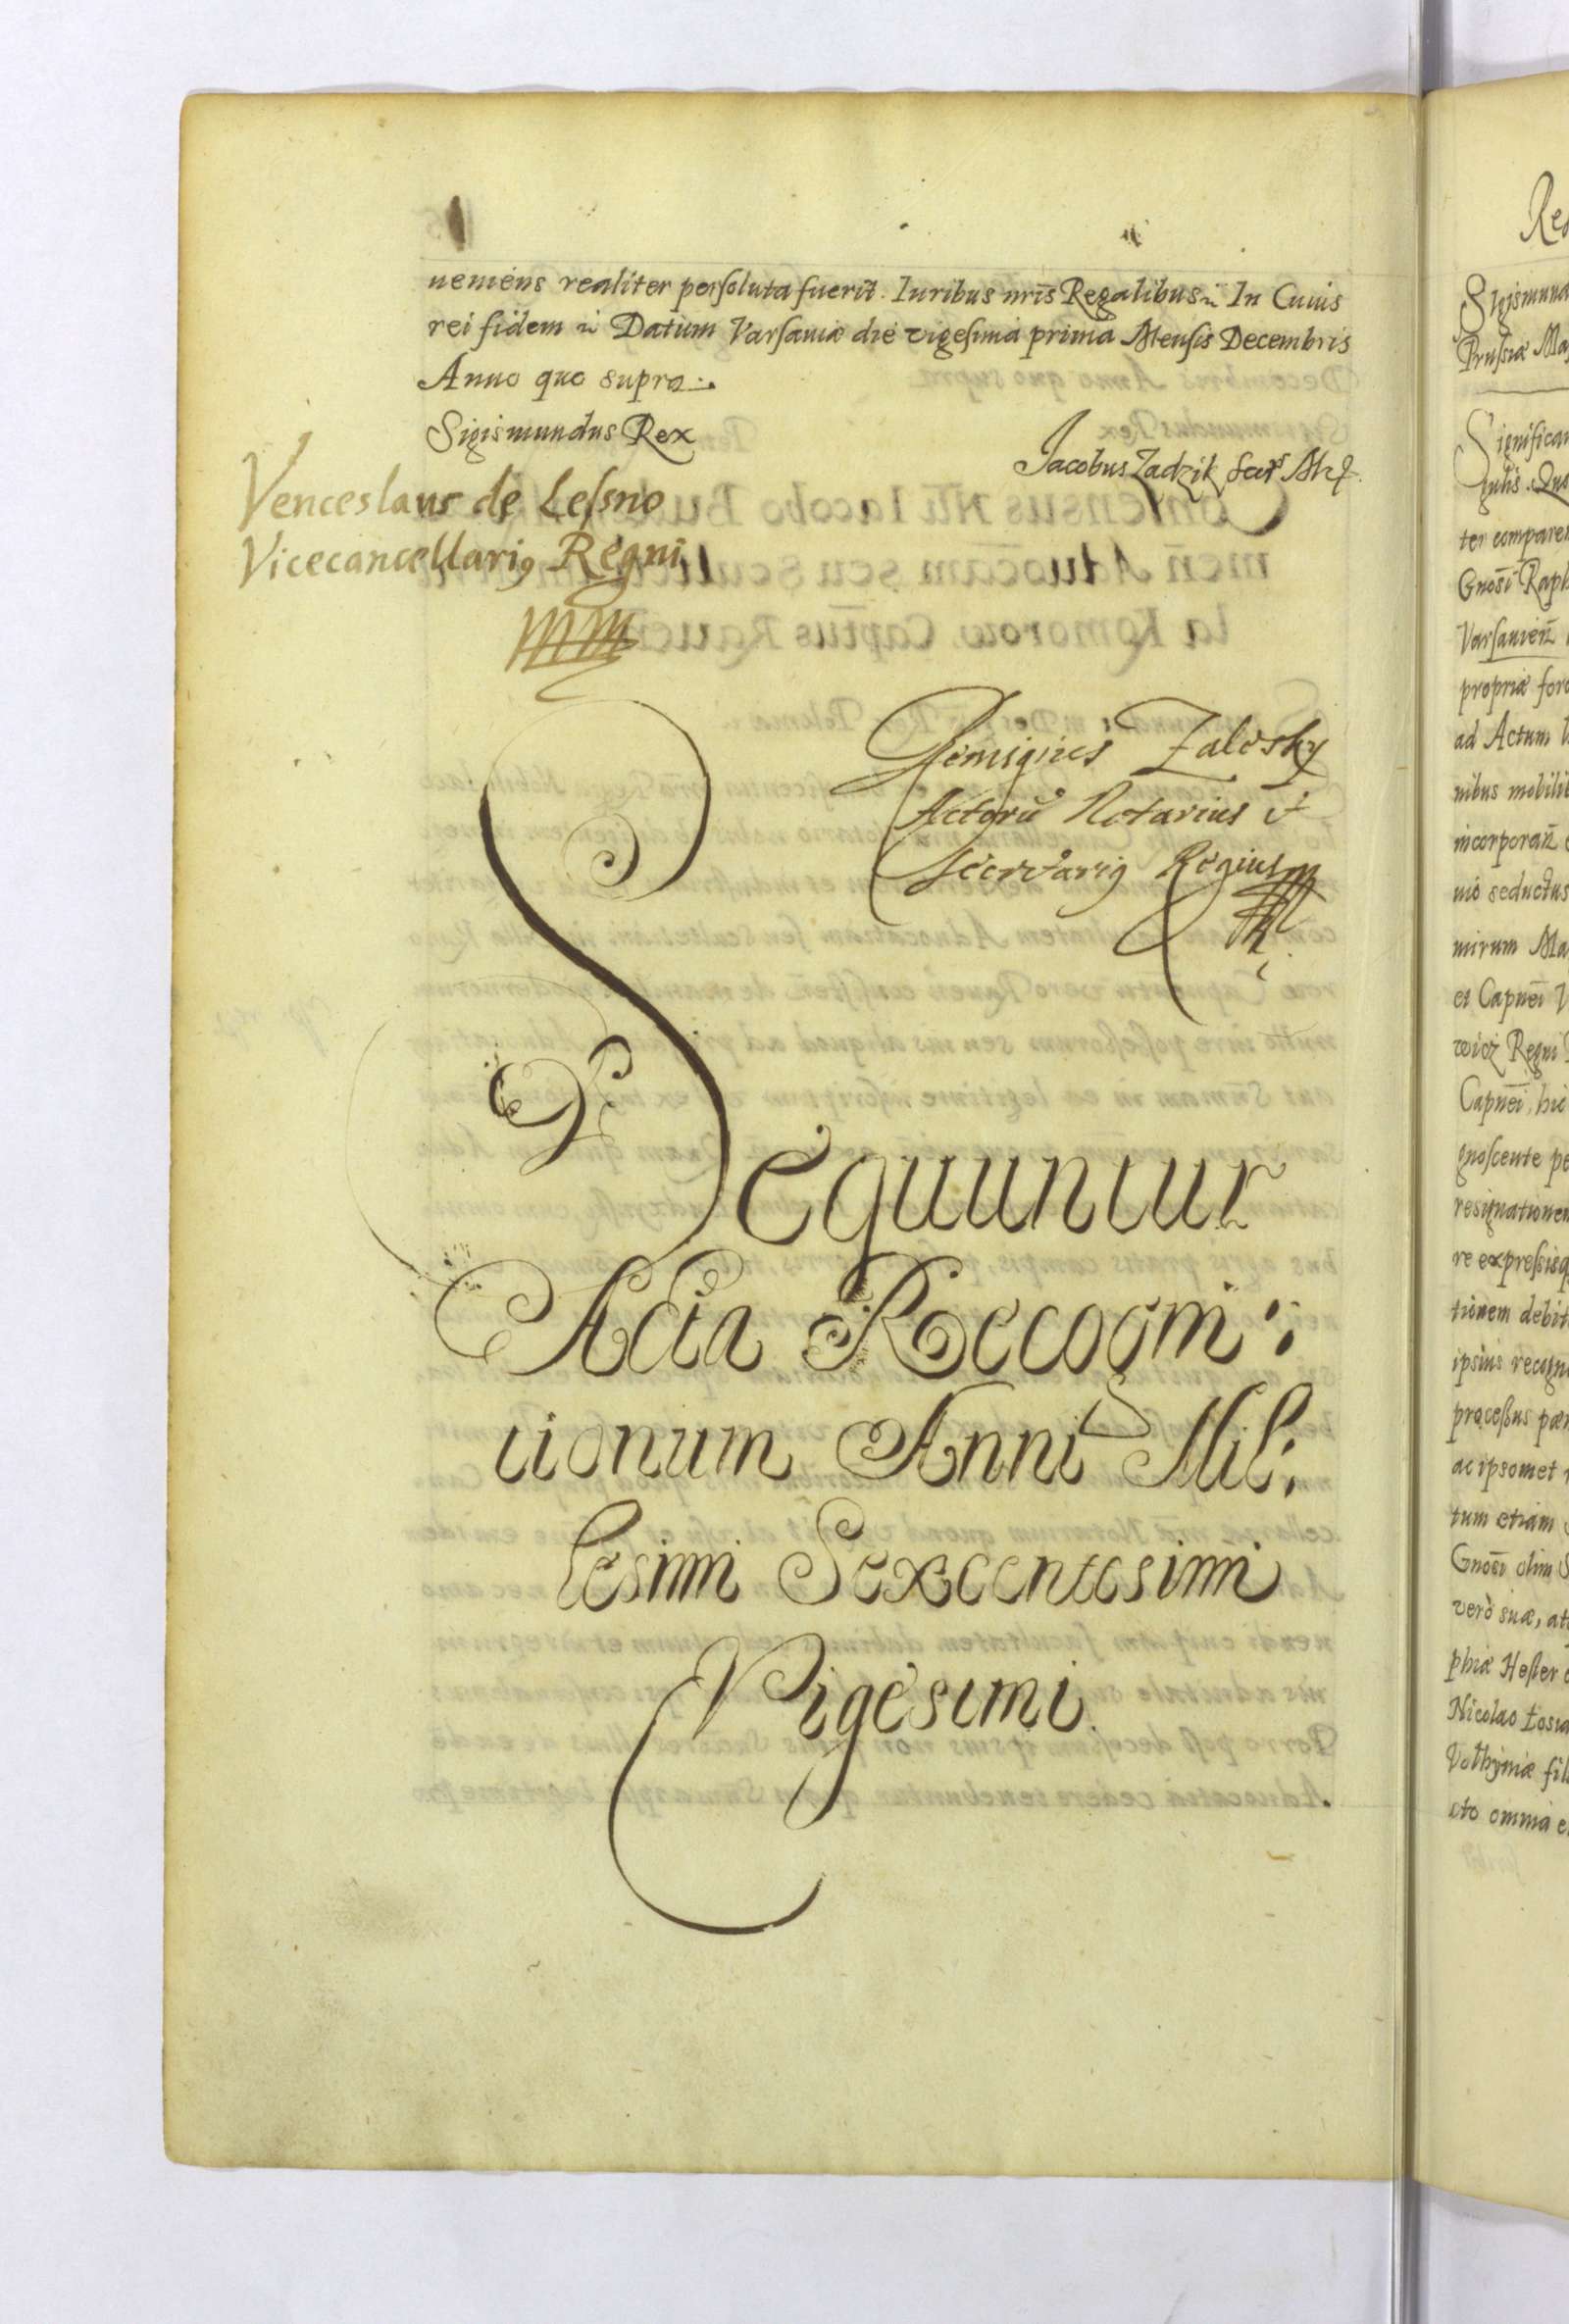 ueniens realiter persoluta fuerit. Iuribus nris Regalibus In Cuius
rei fidem Datum Varsauiæ die vigesima prima Mensis Decembris
Anno quo supra.
Sigismundus Rex
Jacobus Zadzik
Venceslaus de Lessno
Vicecancellari9 Regni
mm
Remigius Zalesky
Actorū Notarius et
Secretari9 Regius
Sequuntur
Acta Recogni:
tionum Anni Mil:
lesimi Sexcentesimi
Vigesimi.
Sigismund
Prussiæ Ma
Significam
ter compare
Gnosi Raph
Varsauien
propriæ foro
ad Actum
nibus mobilib
incorporan
nio seductus
mirum Ma
et Capnei
wicz Regni
Capnei, hic
gnoscente pe
resignationem
re expressisq
tionem debit
ipsius recogn
processus pæn
ac ipsomet
tum etiam
Gnosi olim
verò suæ, at
phiæ Hester
Nicolao Łosia
Volhyniæ fil
cto omnia e